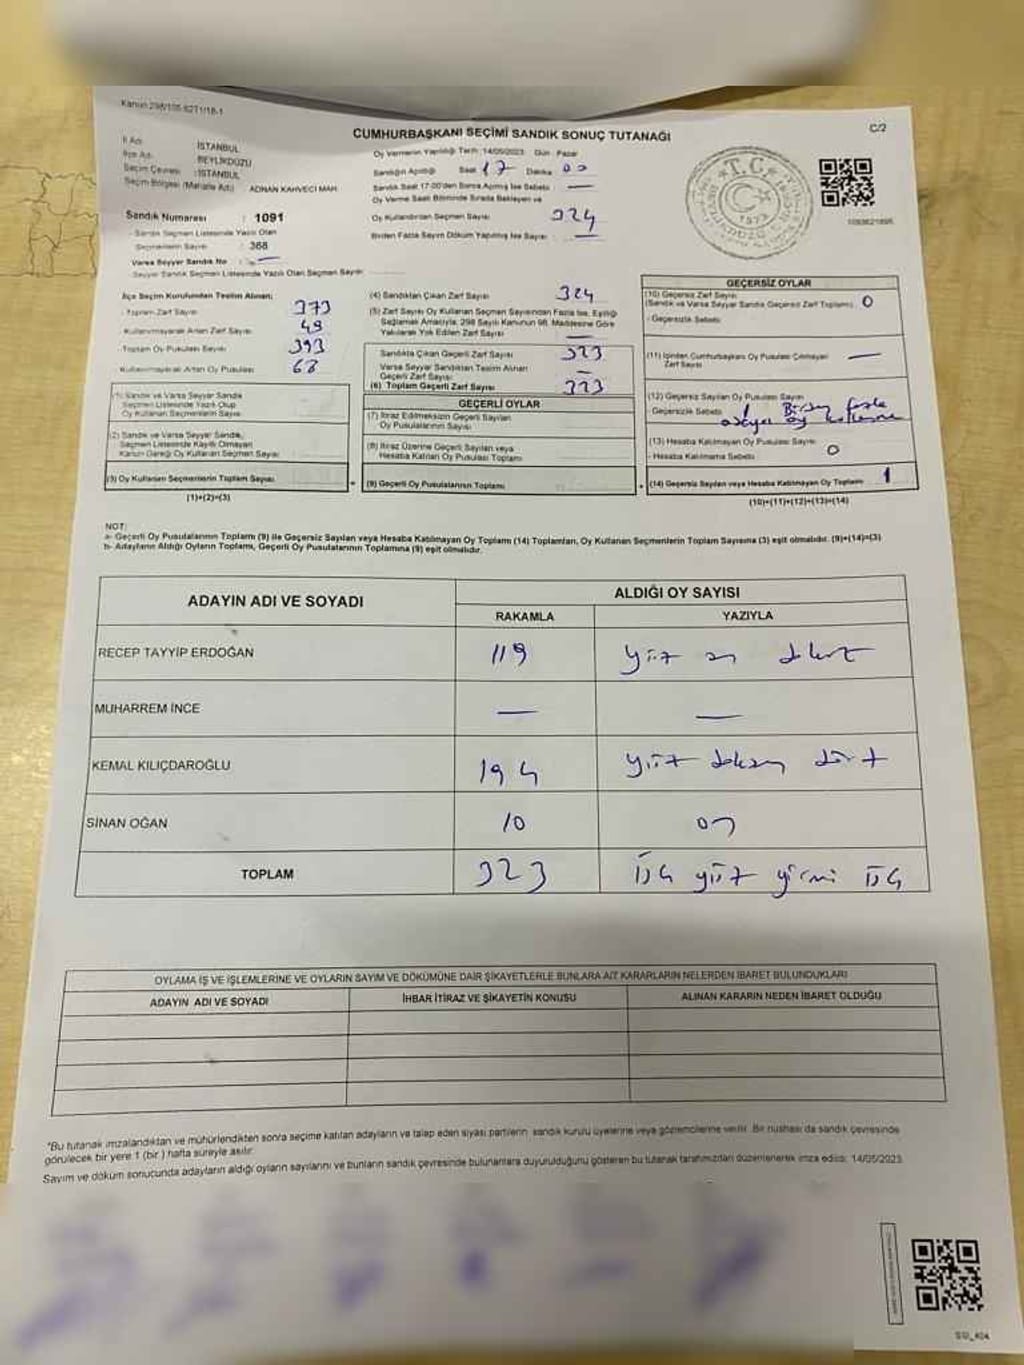 CUMHURBAŞKANI SEÇİMİ SANDIK SONUÇ TUTANAĞI
C/2
İl Adı : İSTANBUL
İlçe Adı : BEYLİKDÜZÜ
Seçim Çevresi : İSTANBUL
Seçim Bölgesi (Mahalle Adı) ADNAN KAHVECİ MAH.
Sandık Numarası : 1091
- Sandık Seçmen Listesinde Yazılı Olan
Seçmenlerin Sayısı : 368
Varsa Seyyar Sandık No : —
- Seyyar Sandık Seçmen Listesinde Yazılı Olan Seçmen Sayısı
Oy Vermenin Yapıldığı Tarih: 14/05/2023 Gün : Pazar
Sandığın Açıldığı Saat 17 Dakika 00
Sandık Saat 17:00'den Sonra Açılmış İse Sebebi —
Oy Verme Saati Bitiminde Sırada Bekleyen ve
Oy Kullandırılan Seçmen Sayısı 324
Birden Fazla Sayım Döküm Yapılmış İse Sayısı : —
T.C.
İlçe Seçim Kurulundan Teslim Alınan:
- Toplam Zarf Sayısı 373
- Kullanılmayarak Artan Zarf Sayısı 49
- Toplam Oy Pusulası Sayısı 393
- Kullanılmayarak Artan Oy Pusulası
(1) Sandık ve Varsa Seyyar Sandık
Seçmen Listesinde Yazılı Olup
Oy Kullanan Seçmenlerin Sayısı
(2) Sandık ve Varsa Seyyar Sandık,
Seçmen Listesinde Kayıtlı Olmayan
Kanun Gereği Oy Kullanan Seçmen Sayısı
(3) Oy Kullanan Seçmenlerin Toplam Sayısı
(1)+(2)=(3)
(4) Sandıktan Çıkan Zarf Sayısı 324
(5) Zarf Sayısı Oy Kullanan Seçmen Sayısından Fazla İse, Eşitliği
Sağlamak Amacıyla, 298 Sayılı Kanunun 98. Maddesine Göre
Yakılarak Yok Edilen Zarf Sayısı —
Sandıkta Çıkan Geçerli Zarf Sayısı 323
Varsa Seyyar Sandıktan Teslim Alınan
Geçerli Zarf Sayısı —
(6) Toplam Geçerli Zarf Sayısı 323
GEÇERLİ OYLAR
(7) İtiraz Edilmeksizin Geçerli Sayılan
Oy Pusulalarının Sayısı
(8) İtiraz Üzerine Geçerli Sayılan veya
Hesaba Katılan Oy Pusulası Toplamı
(9) Geçerli Oy Pusulalarının Toplamı
GEÇERSİZ OYLAR
(10) Geçersiz Zarf Sayısı
(Sandık ve Varsa Seyyar Sandık Geçersiz Zarf Toplamı) 0
- Geçersizlik Sebebi:
(11) İçinden Cumhurbaşkanı Oy Pusulası Çıkmayan
Zarf Sayısı —
(12) Geçersiz Sayılan Oy Pusulası Sayısı 1
- Geçersizlik Sebebi Birden fazla
adaya oy
(13) Hesaba Katılmayan Oy Pusulası Sayısı 0
- Hesaba Katılmama Sebebi:
(14) Geçersiz Sayılan veya Hesaba Katılmayan Oy Toplamı 1
(10)+(11)+(12)+(13)=(14)
NOT:
a- Geçerli Oy Pusulalarının Toplamı (9) ile Geçersiz Sayılan veya Hesaba Katılmayan Oy Toplamı (14) Toplamları, Oy Kullanan Seçmenlerin Toplam Sayısına (3) eşit olmalıdır. (9)+(14)=(3)
b- Adayların Aldığı Oyların Toplamı, Geçerli Oy Pusulalarının Toplamına (9) eşit olmalıdır.
ADAYIN ADI VE SOYADI
ALDIĞI OY SAYISI
RAKAMLA YAZIYLA
RECEP TAYYİP ERDOĞAN 119 yüz on dokuz
MUHARREM İNCE — —
KEMAL KILIÇDAROĞLU 194 yüz doksan dört
SİNAN OĞAN 10 on
TOPLAM 323 üç yüz yirmi üç
OYLAMA İŞ VE İŞLEMLERİNE VE OYLARIN SAYIM VE DÖKÜMÜNE DAİR ŞİKAYETLERLE BUNLARA AİT KARARLARIN NELERDEN İBARET BULUNDUKLARI
ADAYIN ADI VE SOYADI İHBAR İTİRAZ VE ŞİKAYETİN KONUSU ALINAN KARARIN NEDEN İBARET OLDUĞU
*Bu tutanak imzalandıktan ve mühürlendikten sonra seçime katılan adayların ve talep eden siyasi partilerin sandık kurulu üyelerine veya gözlemcilerine verilir. Bir nüshası da sandık çevresinde
görülecek bir yere 1 (bir ) hafta süreyle asılır.
Sayım ve döküm sonucunda adayların aldığı oyların sayılarını ve bunların sandık çevresinde bulunanlara duyurulduğunu gösteren bu tutanak tarafımızdan düzenlenerek imza edildi. 14/05/2023